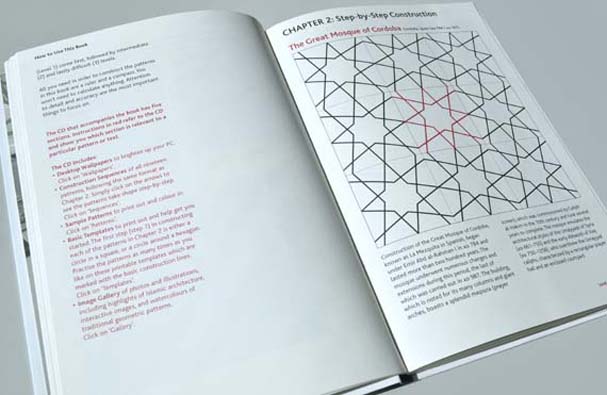 How to Use This Book
(level 1) come first, followed by intermediate
(2) and lastly difficult (3) levels.
All you need in order to construct the patterns
in this book are a ruler and a compass. You
won't need to calculate anything. Attention
to detail and accuracy are the most important
things to focus on.
The CD that accompanies the book has five
sections. Instructions in red refer to the CD
and show you which section is relevant to a
particular pattern or text.
The CD includes:
• Desktop Wallpapers to brighten up your PC.
Click on 'Wallpapers'.
• Construction Sequences of all nineteen
patterns, following the same format as
Chapter 2. Simply click on the arrows to
see the patterns take shape step-by-step.
Click on 'Sequences'.
• Sample Patterns to print out and colour in.
Click on 'Patterns'.
• Basic Templates to print out and help get you
started. The first step (step 1) in constructing
each of the patterns in Chapter 2 is either a
circle in a square, or a circle around a hexagon.
Practise the patterns as many times as you
like on these printable templates which are
marked with the basic construction lines.
Click on 'Templates'.
• Image Gallery of photos and illustrations,
including highlights of Islamic architecture,
interactive images, and watercolours of
traditional geometric patterns.
Click on 'Gallery'.
CHAPTER 2: Step-by-Step Construction
The Great Mosque of Cordoba
Construction of the Great Mosque of Cordoba,
known as La Mezquita in Spanish, began
under Emir Abd al-Rahman I in AD 784 and
lasted more than two hundred years. The
mosque underwent numerous changes and
extensions during this period, the last of
which was carried out in AD 987. The building,
which is noted for its many columns and giant
arches, boasts a splendid maqsura (prayer
screen), which was commissioned by Caliph
al-Hakam in the 10th century and took several
years to complete. The mosque emulates the
architectural styles of the Umayyads of Syria